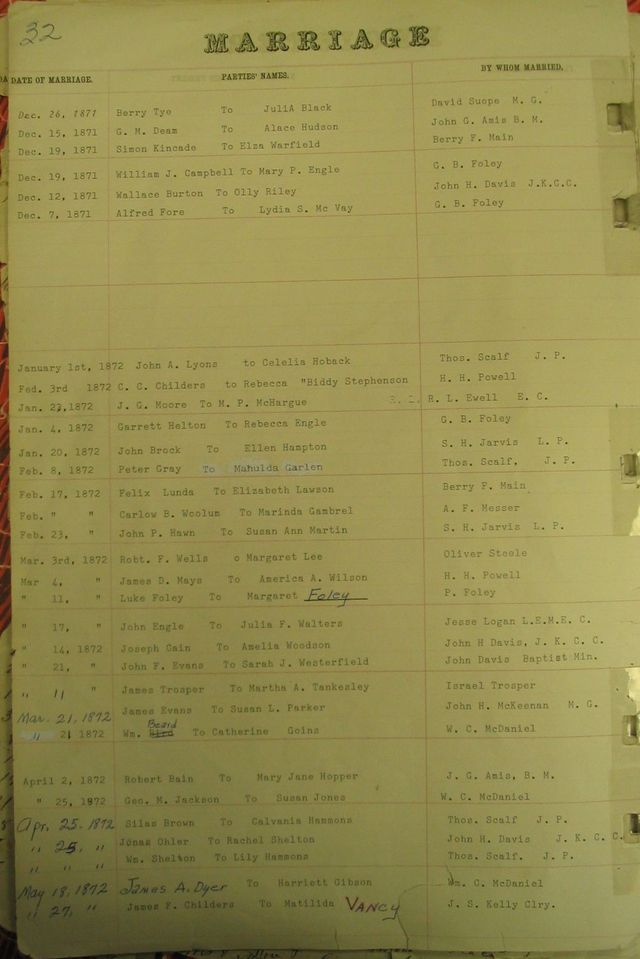 32
MARRIAGE
DATE OF MARRIAGE. PARTIES' NAMES. BY WHOM MARRIED.
Dec. 26, 1871 Berry Tye To JuliA Black David Suope M. G.
Dec. 15, 1871 G. M. Deam To Alace Hudson John G. Amis B. M.
Dec. 19, 1871 Simon Kincade To Elza Warfield Berry F. Main
Dec. 19, 1871 William J. Campbell To Mary P. Engle G. B. Foley
Dec. 12, 1871 Wallace Burton To Olly Riley John H. Davis J.K.C.C.
Dec. 7, 1871 Alfred Fore To Lydia S. Mc Vay G. B. Foley
January 1st, 1872 John A. Lyons to Celelia Hoback Thos. Scalf J. P.
Fed. 3rd 1872 C. C. Childers to Rebecca "Biddy Stephenson H. H. Powell
Jan. 23,1872 J. G. Moore To M. P. McHargue R. L. Ewell E. C.
Jan. 4, 1872 Garrett Helton To Rebecca Engle G. B. Foley
Jan. 20, 1872 John Brock To Ellen Hampton S. H. Jarvis L. P.
Feb. 8, 1872 Peter Gray To Mahulda Garlen Thos. Scalf, J. P.
Feb. 17, 1872 Felix Lunda To Elizabeth Lawson Berry F. Main
Feb. " " Carlow B. Woolum To Marinda Gambrel A. F. Messer
Feb. 23, " John P. Hawn To Susan Ann Martin S. H. Jarvis L. P.
Mar. 3rd, 1872 Robt. F. Wells o Margaret Lee Oliver Steele
Mar 4, " James D. Mays To America A. Wilson H. H. Powell
" 11, " Luke Foley To Margaret Foley P. Foley
" 17, " John Engle To Julia F. Walters Jesse Logan L.E.M.E. C.
" 14, 1872 Joseph Cain To Amelia Woodson John H Davis, J. K. C. C.
" 21, " John F. Evans To Sarah J. Westerfield John Davis Baptist Min.
" 11 " James Trosper To Martha A. Tankesley Israel Trosper
Mar. 21, 1872 James Evans To Susan L. Parker John H. McKeenan M. G.
" 21 1872 Wm. Beard To Catherine Goins W. C. McDaniel
April 2, 1872 Robert Bain To Mary Jane Hopper J. G. Amis, B. M.
" 25, 1872 Geo. M. Jackson To Susan Jones W. C. McDaniel
Apr. 25. 1872 Silas Brown To Calvania Hammons Thos. Scalf J. P.
" 25, " Jonas Ohler To Rachel Shelton John H. Davis J. K. C. C.
" " " Wm. Shelton To Lily Hammons Thos. Scalf. J. P.
May 18, 1872 James A. Dyer To Harriett Gibson Wm. C. McDaniel
" 27, " James F. Childers To Matilda VANCY J. S. Kelly Clry.